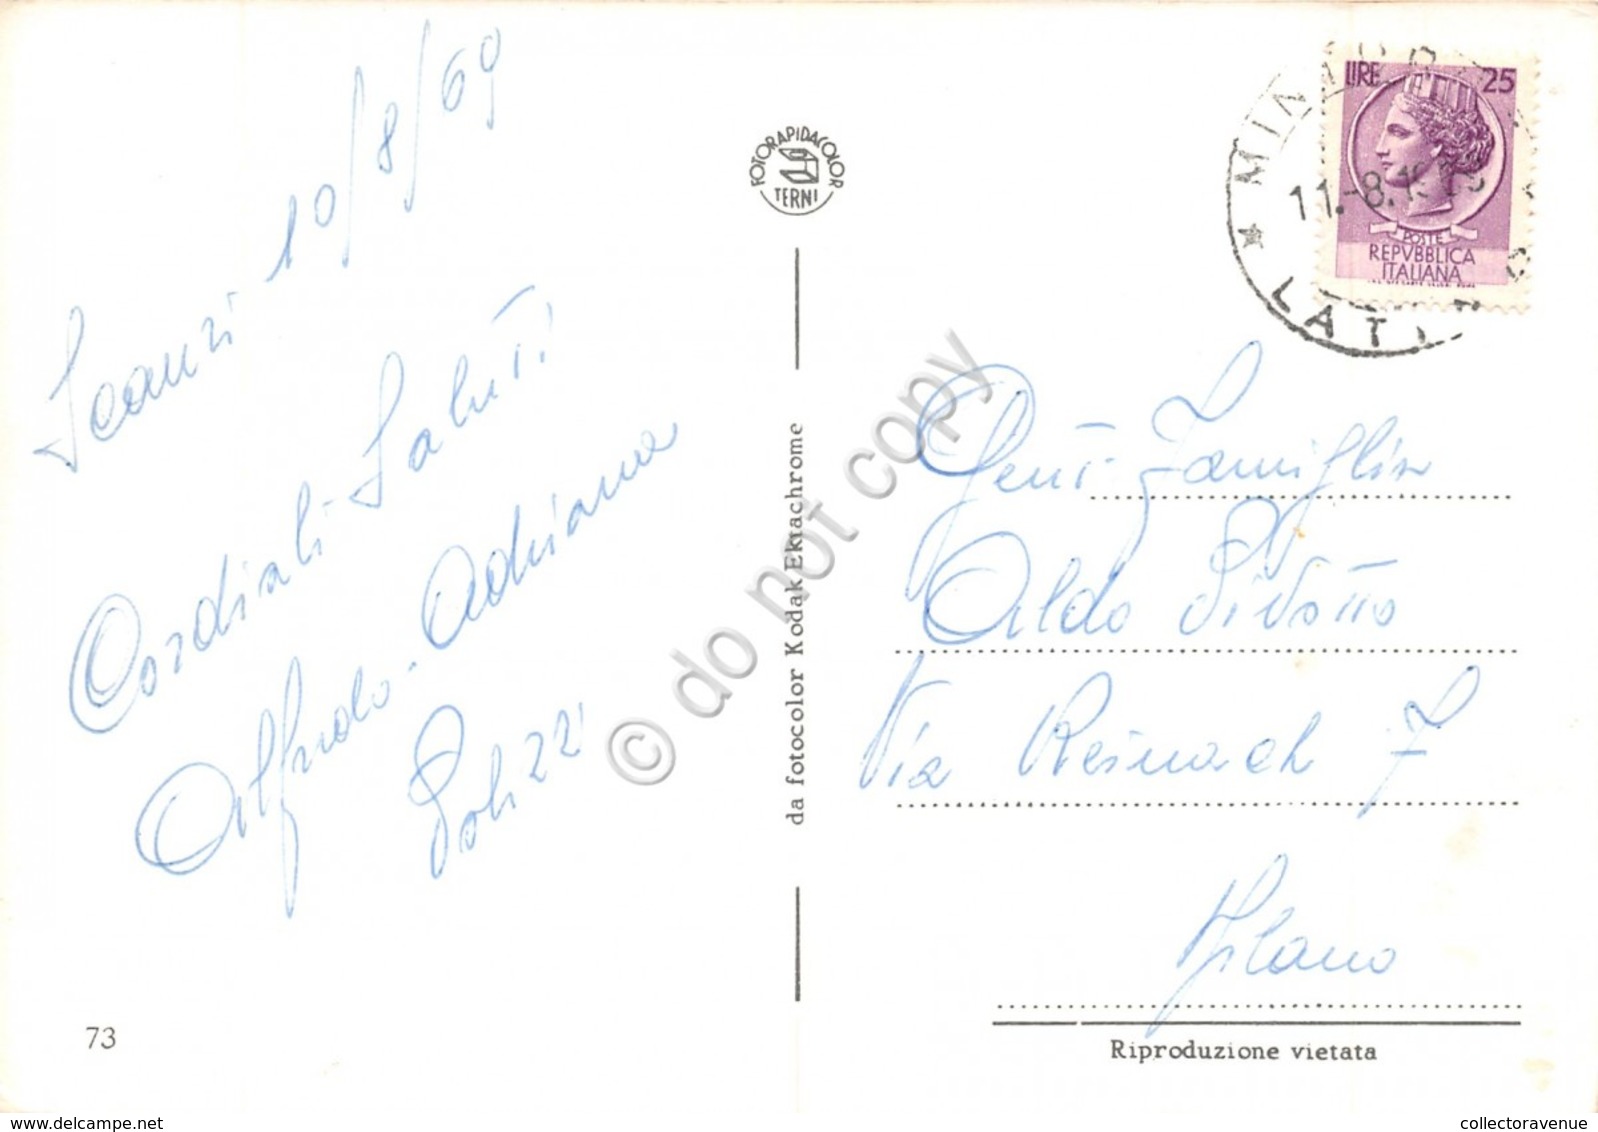 Scauri 10/8/69
Cordiali Saluti
Alfredo - Adriana
Polizzi
73
FOTORAPIDACOLOR
TERNI
da fotocolor Kodak Ektachrome
LIRE 25
POSTE
REPVBBLICA
ITALIANA
11.-8.19
LATI
Gent. Famiglia
Aldo
Via Reinach 7
Milano
Riproduzione vietata
© do not copy
collectoravenue.com